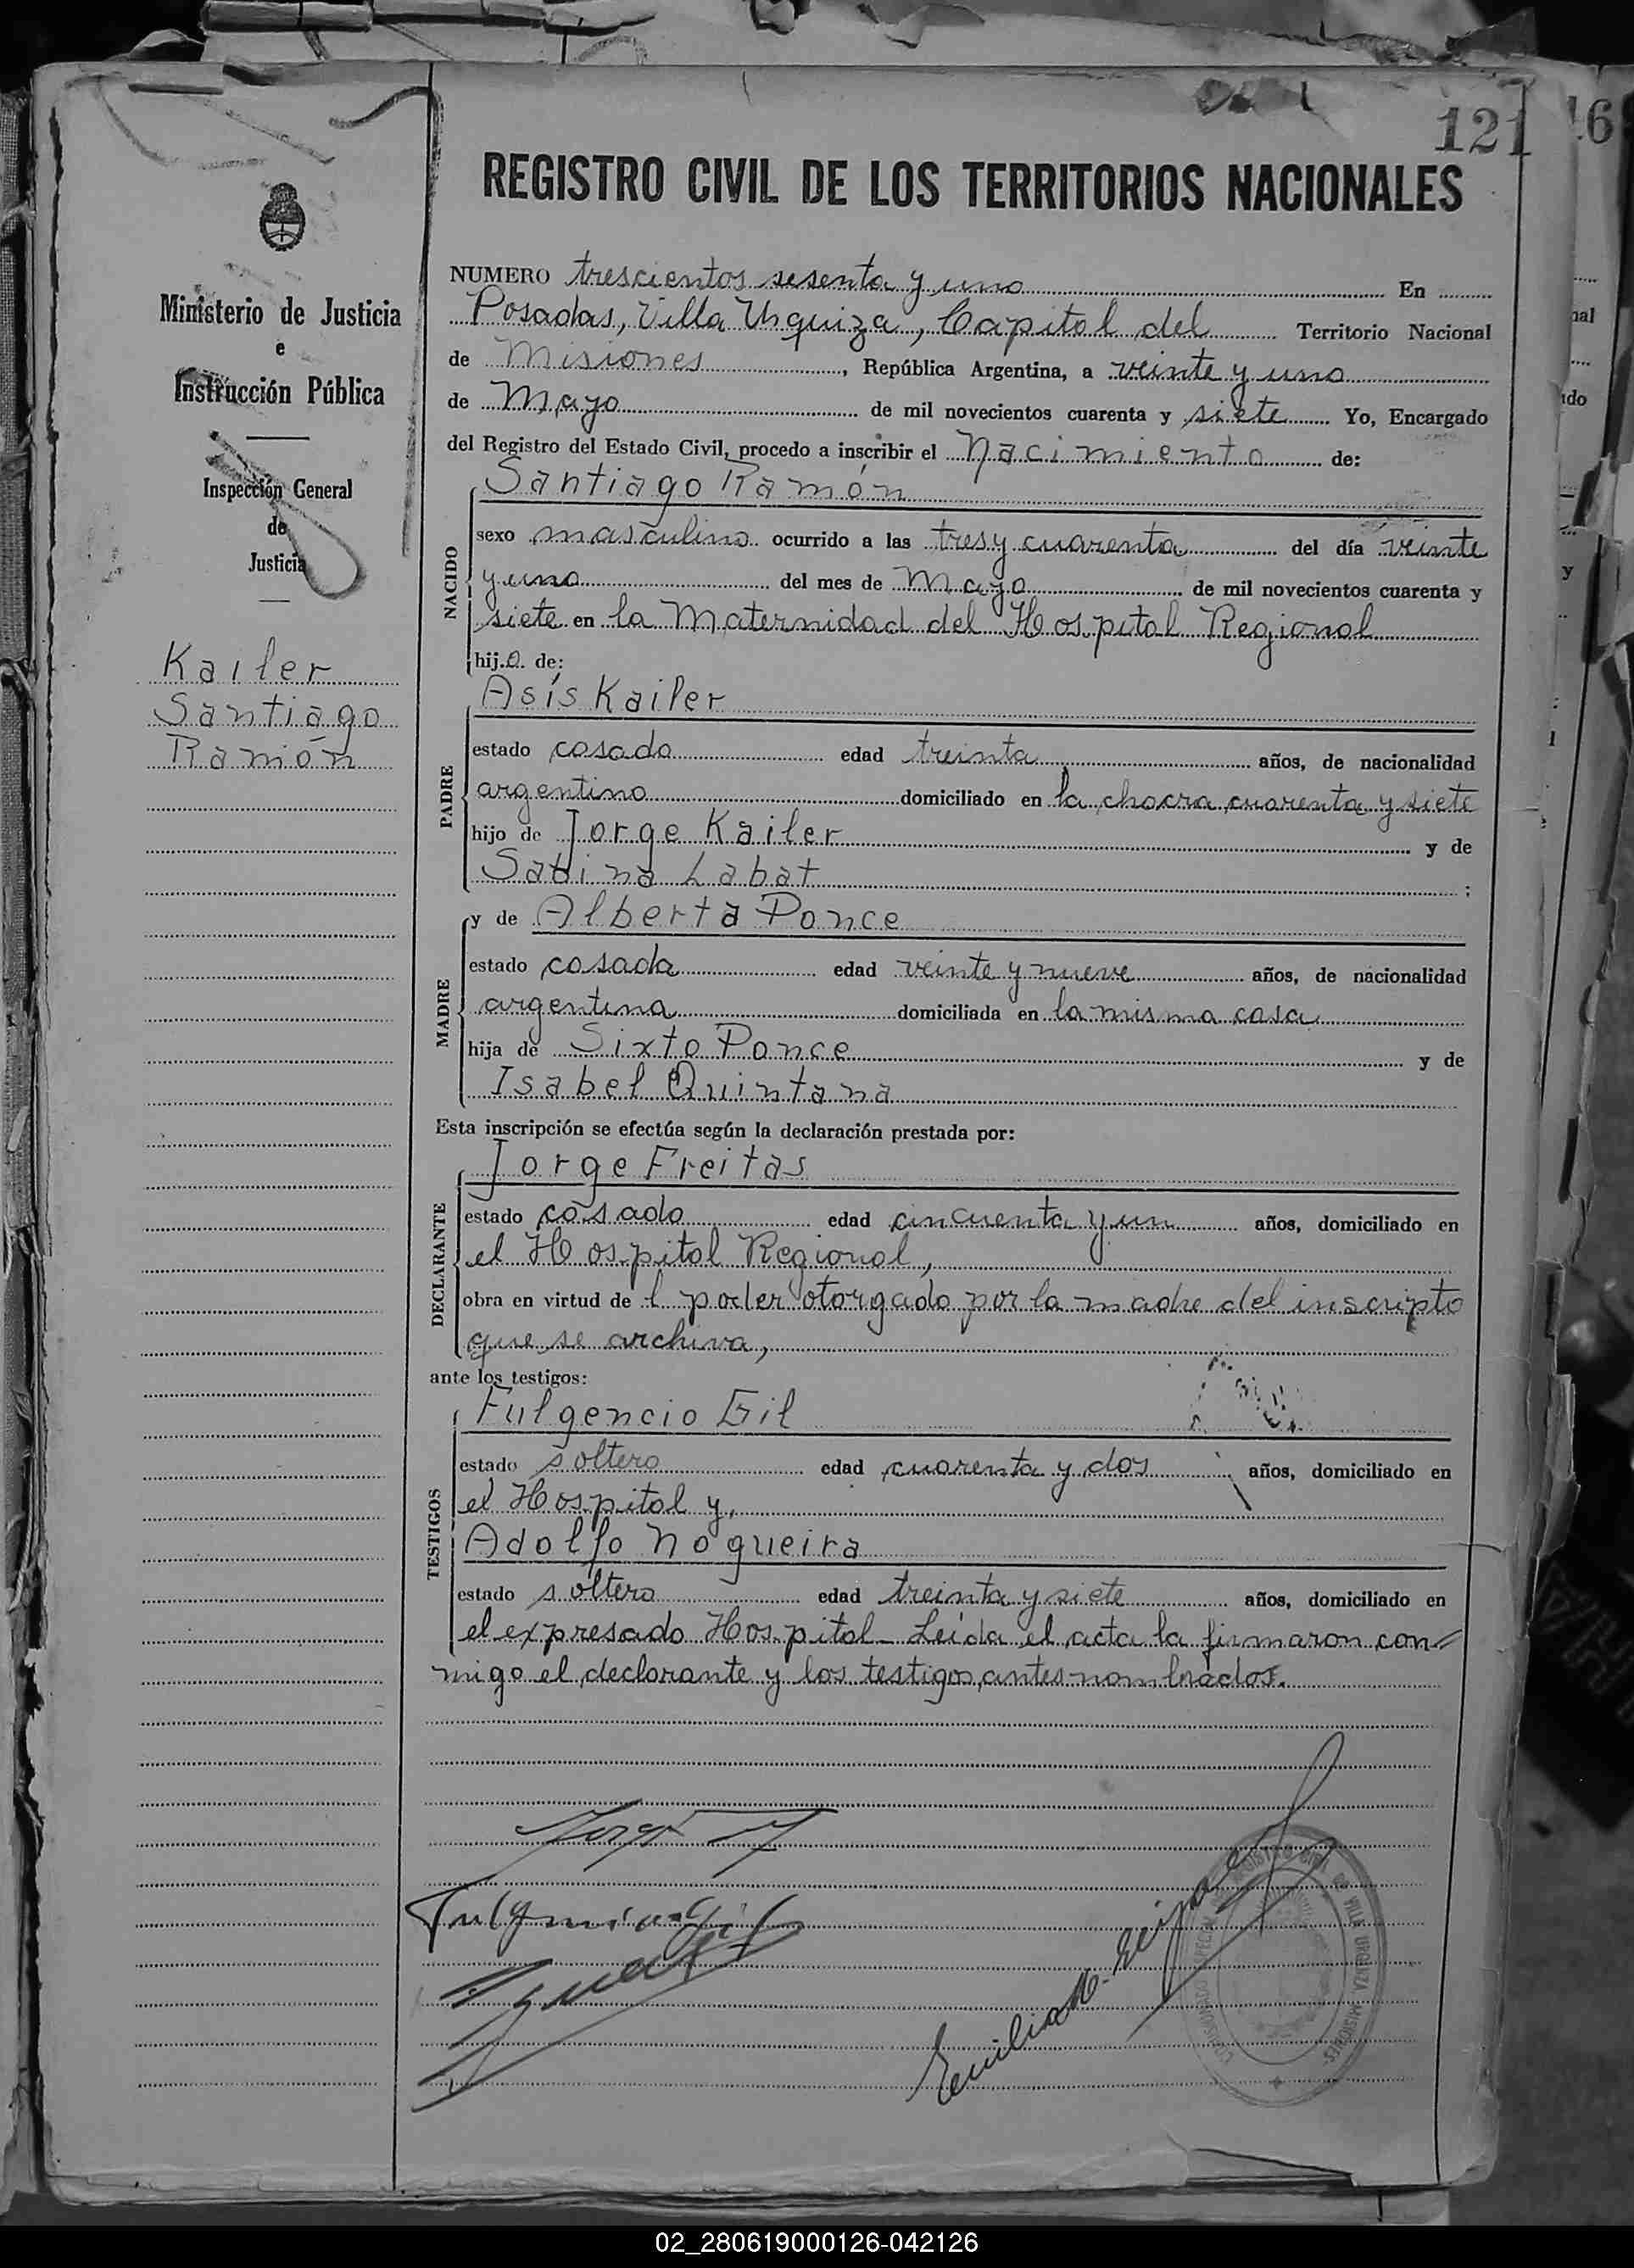 121
16
REGISTRO CIVIL DE LOS TERRITORIOS NACIONALES
Ministerio de Justicia
e
Instrucción Pública
Inspección General
de
Justicia
Kailer
Santiago
Ramón
NUMERO trescientos sesenta y uno En
Posadas, Villa Urquiza, Capital del Territorio Nacional
de Misiones, República Argentina, a veinte y uno
de Mayo de mil novecientos cuarenta y siete Yo, Encargado
del Registro del Estado Civil, procedo a inscribir el nacimiento de:
NACIDO
Santiago Ramón
sexo masculino ocurrido a las tres y cuarenta del día veinte
y uno del mes de Mayo de mil novecientos cuarenta y
siete en la Maternidad del Hospital Regional
hijo de:
PADRE
Asís Kailer
estado casado edad treinta años, de nacionalidad
argentino domiciliado en la chacra cuarenta y siete
hijo de Jorge Kailer y de
Sabina Labat ;
MADRE
y de Alberta Ponce
estado casada edad veinte y nueve años, de nacionalidad
argentina domiciliada en la misma casa
hija de Sixto Ponce y de
Isabel Quintana
Esta inscripción se efectúa según la declaración prestada por:
DECLARANTE
Jorge Freitas
estado casado edad cincuenta y un años, domiciliado en
el Hospital Regional,
obra en virtud de l poder otorgado por la madre del inscripto
que se archiva,
ante los testigos:
TESTIGOS
Fulgencio Gil
estado soltero edad cuarenta y dos años, domiciliado en
el Hospital y,
Adolfo Nogueira
estado soltero edad treinta y siete años, domiciliado en
el expresado Hospital - Leída el acta la firmaron con=
migo el declarante y los testigos antes nombrados.
Jorge
Fulgencio Gil
Emilia
REGISTRO CIVIL DE VILLA URQUIZA MISIONES
02_280619000126-042126